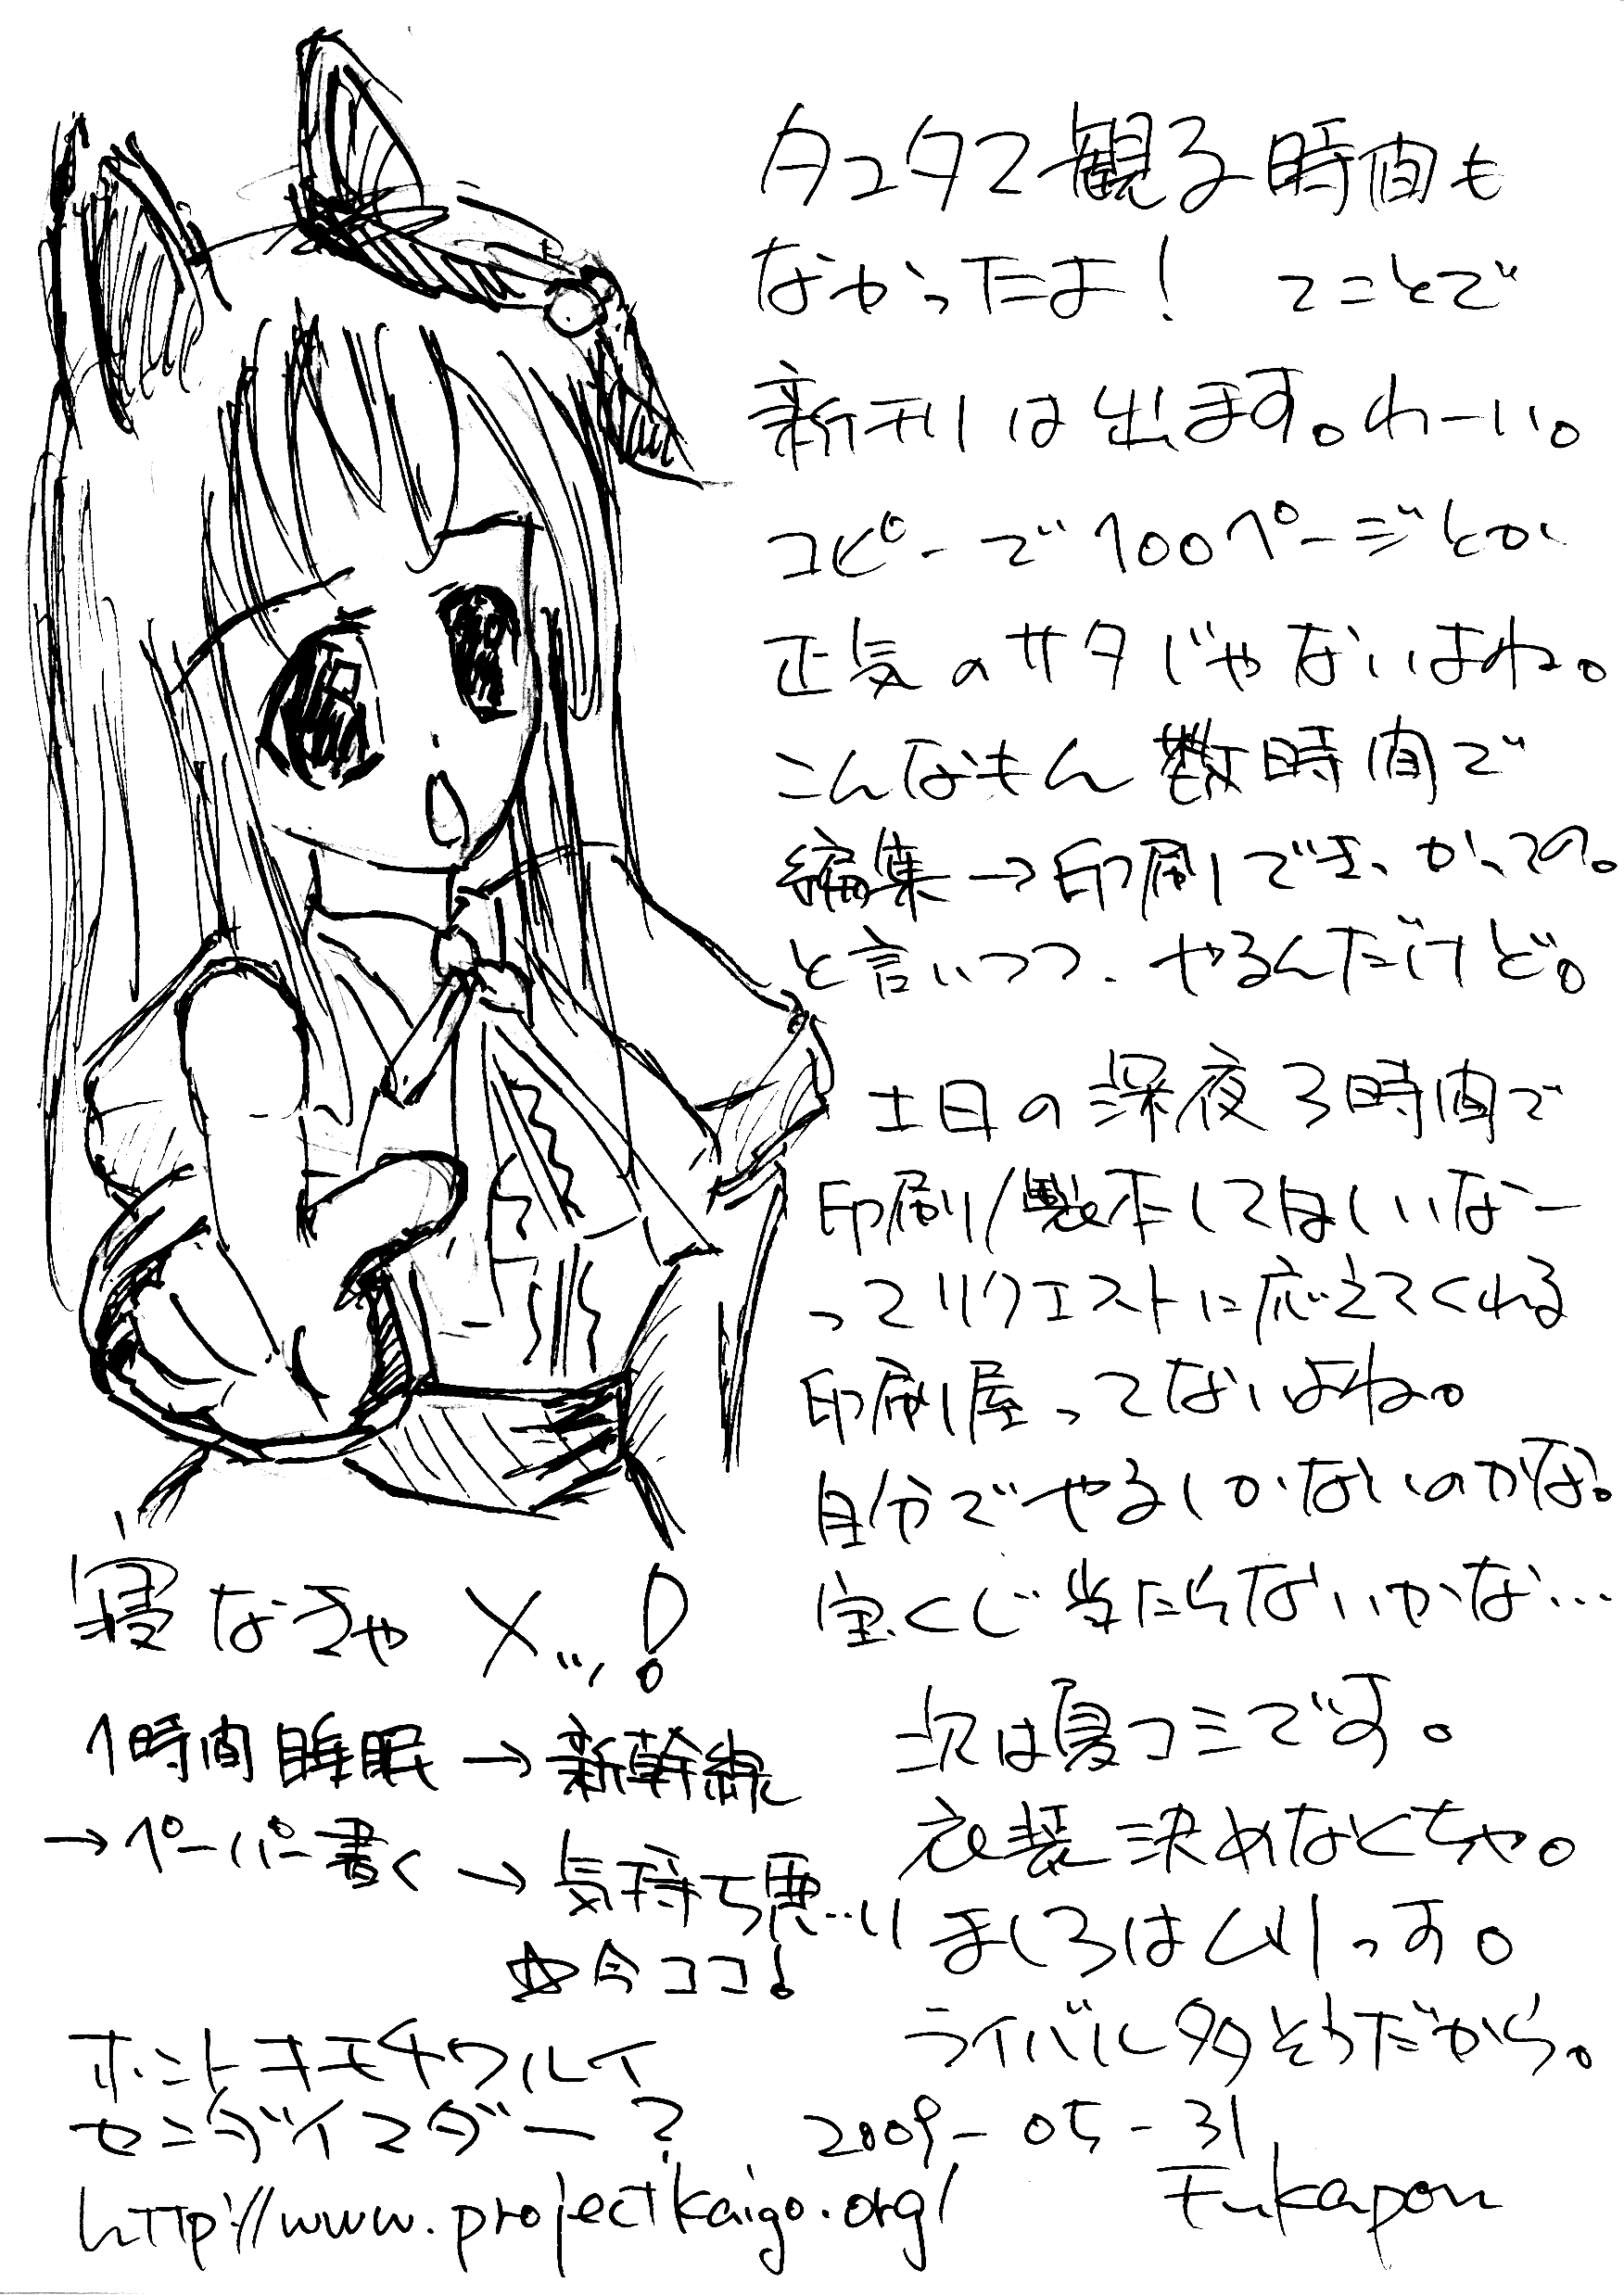 タユタマ観る時間も
なかったよ! てことで
新刊は出ます。わーい。
コピーで100ページとか
正気のサタじゃないよね。
こんなもん数時間で
編集→印刷できっかっての。
と言いつつ、やるんだけど。
土日の深夜3時間で
印刷/製本してほしいなー
ってリクエストに応えてくれる
印刷屋ってないよね。
自分でやるしかないのかな。
宝くじ当たらないかな…
次は夏コミです。
衣装決めなくちゃ。
ましろはムリっす。
ライバル多そうだから。
寝なきゃメッ!
1時間睡眠→新幹線
→ペーパー書く→気持ち悪…い
☆今ココ!
ホントキモチワルイ
センダイマダー?
2009-05-31
http://www.projectkaigo.org/
Fukapon